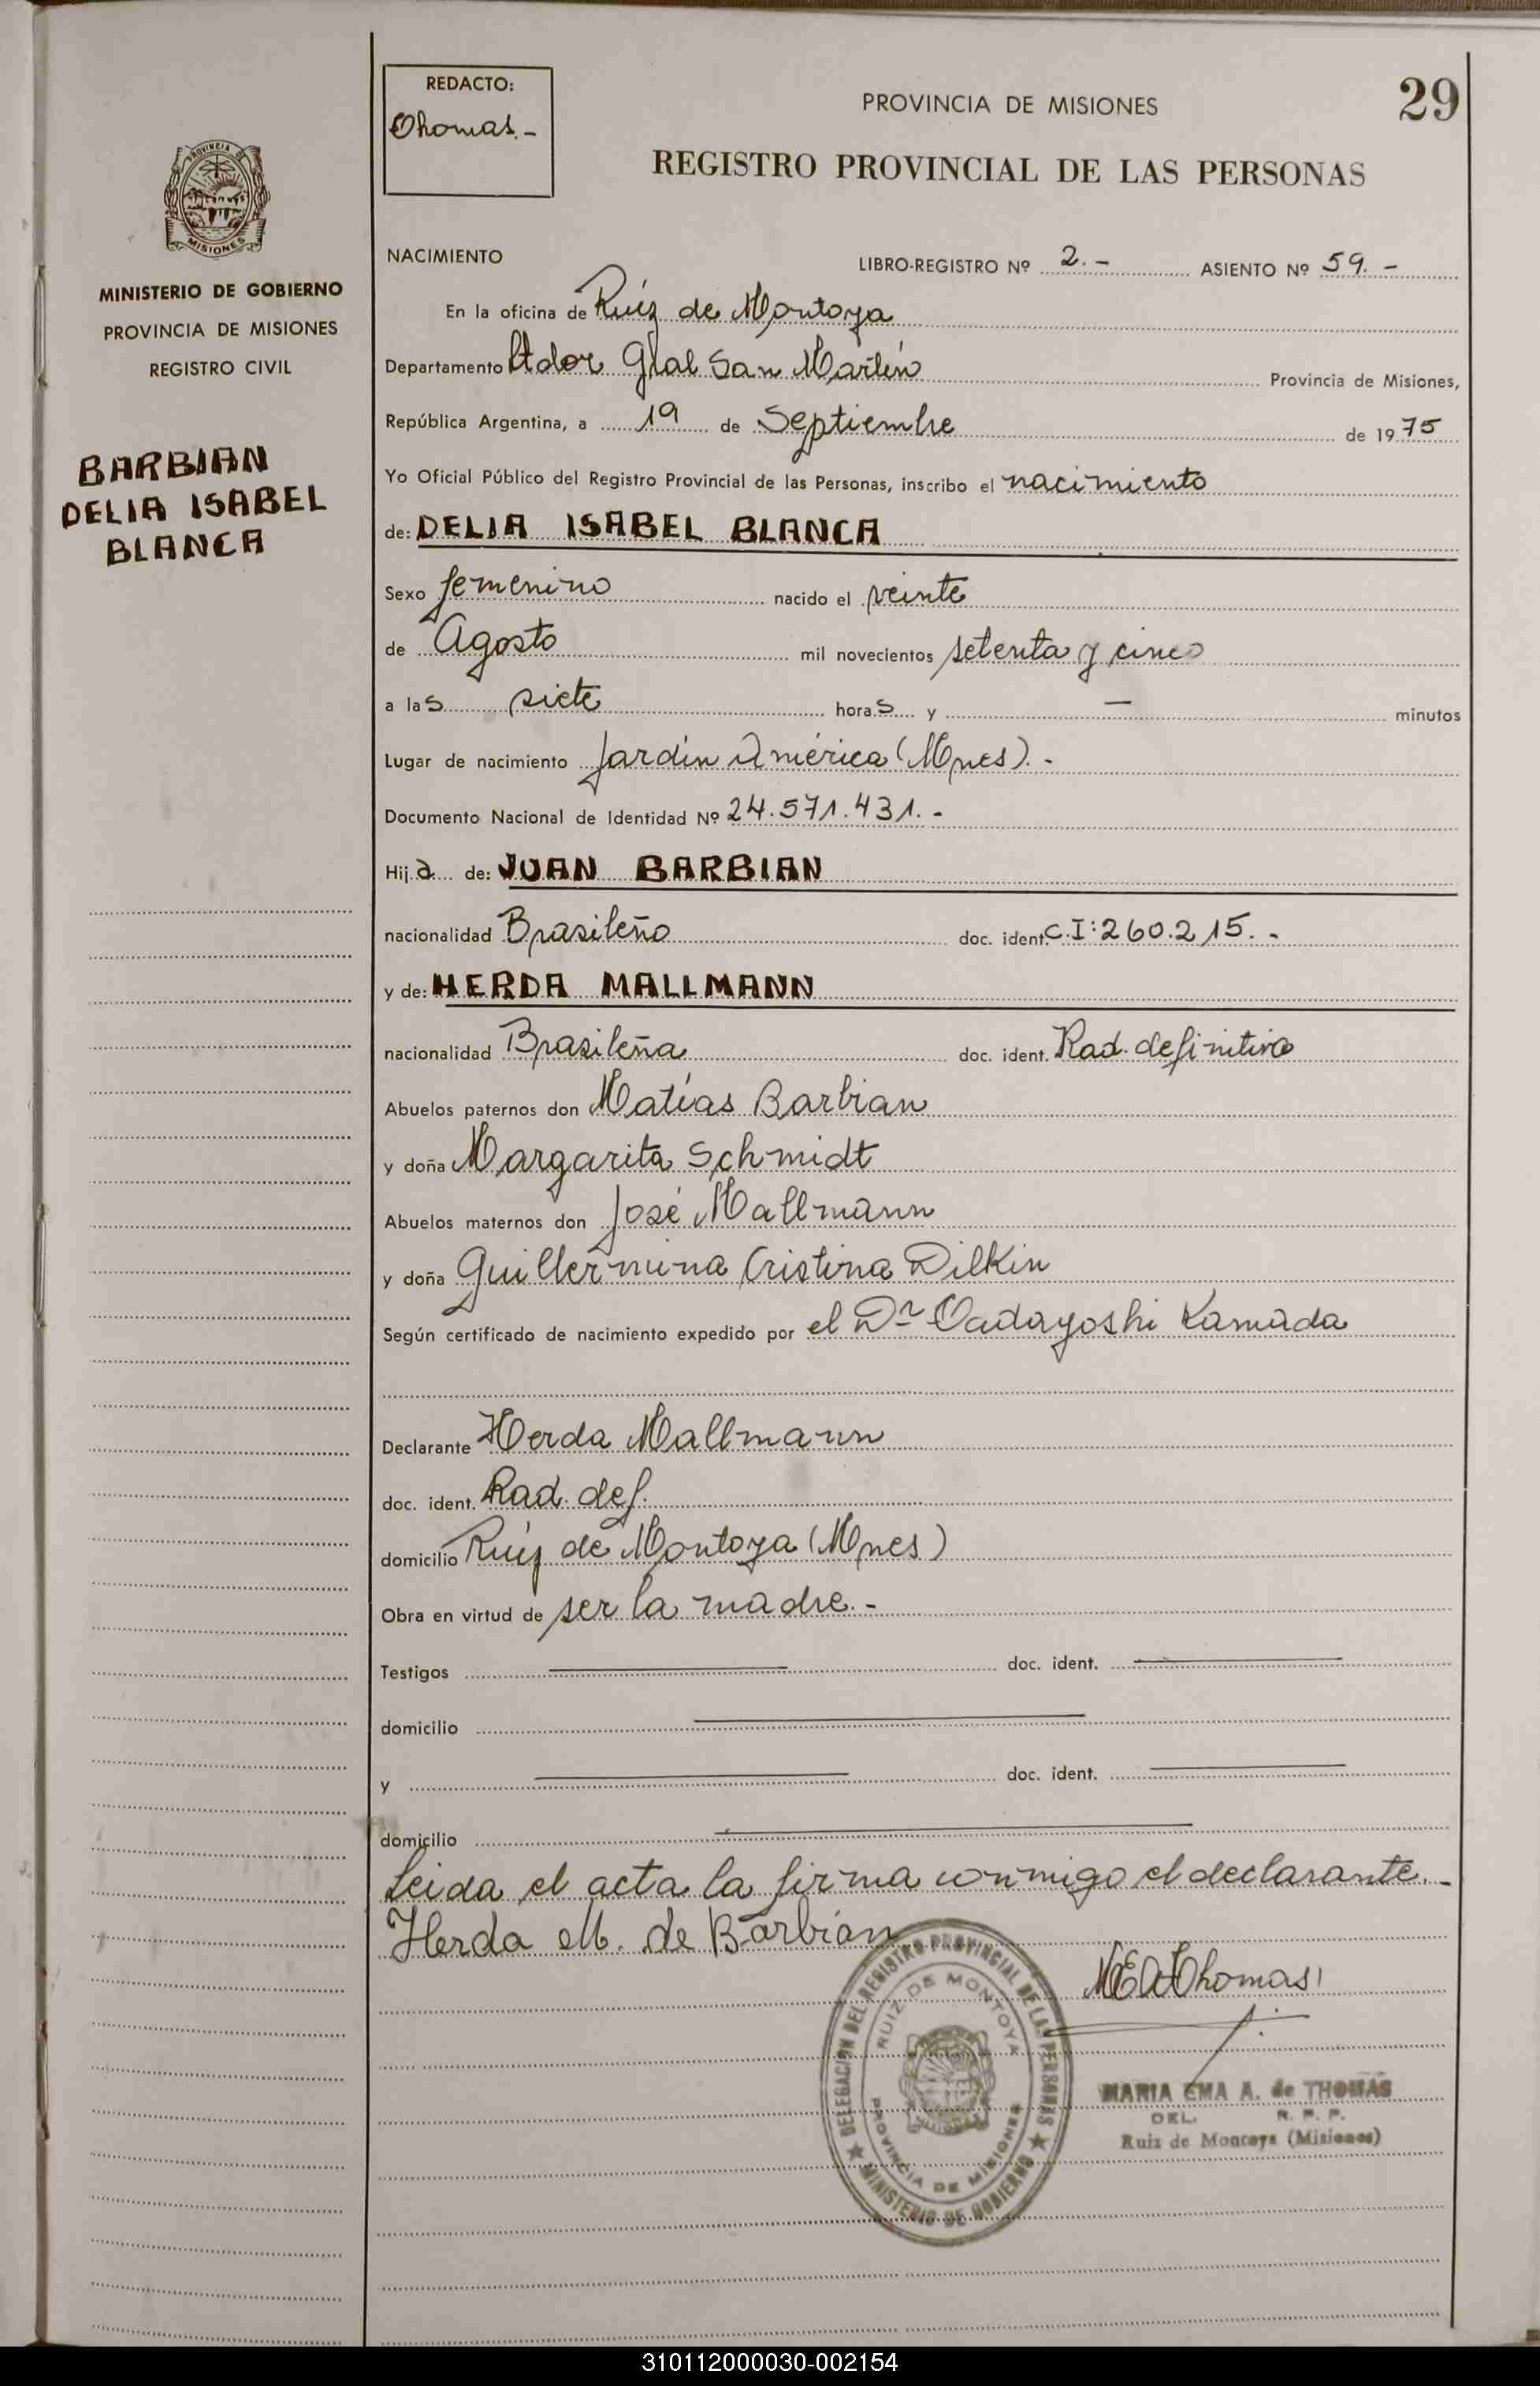 REDACTO:
Thomas.-
PROVINCIA DE MISIONES
29
REGISTRO PROVINCIAL DE LAS PERSONAS
PROVINCIA DE
MISIONES
MINISTERIO DE GOBIERNO
PROVINCIA DE MISIONES
REGISTRO CIVIL
BARBIAN
DELIA ISABEL
BLANCA
NACIMIENTO
LIBRO-REGISTRO Nº 2.- ASIENTO Nº 59.-
En la oficina de Ruíz de Montoya
Departamento Ltdor Gral San Martín Provincia de Misiones,
República Argentina, a 19 de Septiembre de 1975
Yo Oficial Público del Registro Provincial de las Personas, inscribo el nacimiento
de: DELIA ISABEL BLANCA
Sexo femenino nacido el veinte
de Agosto mil novecientos setenta y cinco
a las siete horas y — minutos
Lugar de nacimiento Jardín América (Mnes).-
Documento Nacional de Identidad Nº 24.571.431.-
Hija de: JUAN BARBIAN
nacionalidad Brasileño doc. ident. C.I:260.215.-
y de: HERDA MALLMANN
nacionalidad Brasileña doc. ident. Rad. definitiva
Abuelos paternos don Matías Barbian
y doña Margarita Schmidt
Abuelos maternos don José Mallmann
y doña Guillermina Cristina Dilkin
Según certificado de nacimiento expedido por el Dr Tadayoshi Kamada
Declarante Herda Mallmann
doc. ident. Rad. def.
domicilio Ruíz de Montoya (Mnes)
Obra en virtud de ser la madre.-
Testigos doc. ident.
domicilio
y doc. ident.
domicilio
Leida el acta la firma conmigo el declarante.-
Herda M. de Barbian
DELEGACION DEL REGISTRO PROVINCIAL DE LAS PERSONAS
RUIZ DE MONTOYA
PROVINCIA DE MISIONES
MINISTERIO DE GOBIERNO
MARIA EMA A. de THOMAS
DEL. R. P. P.
Ruiz de Montoya (Misiones)
310112000030-002154